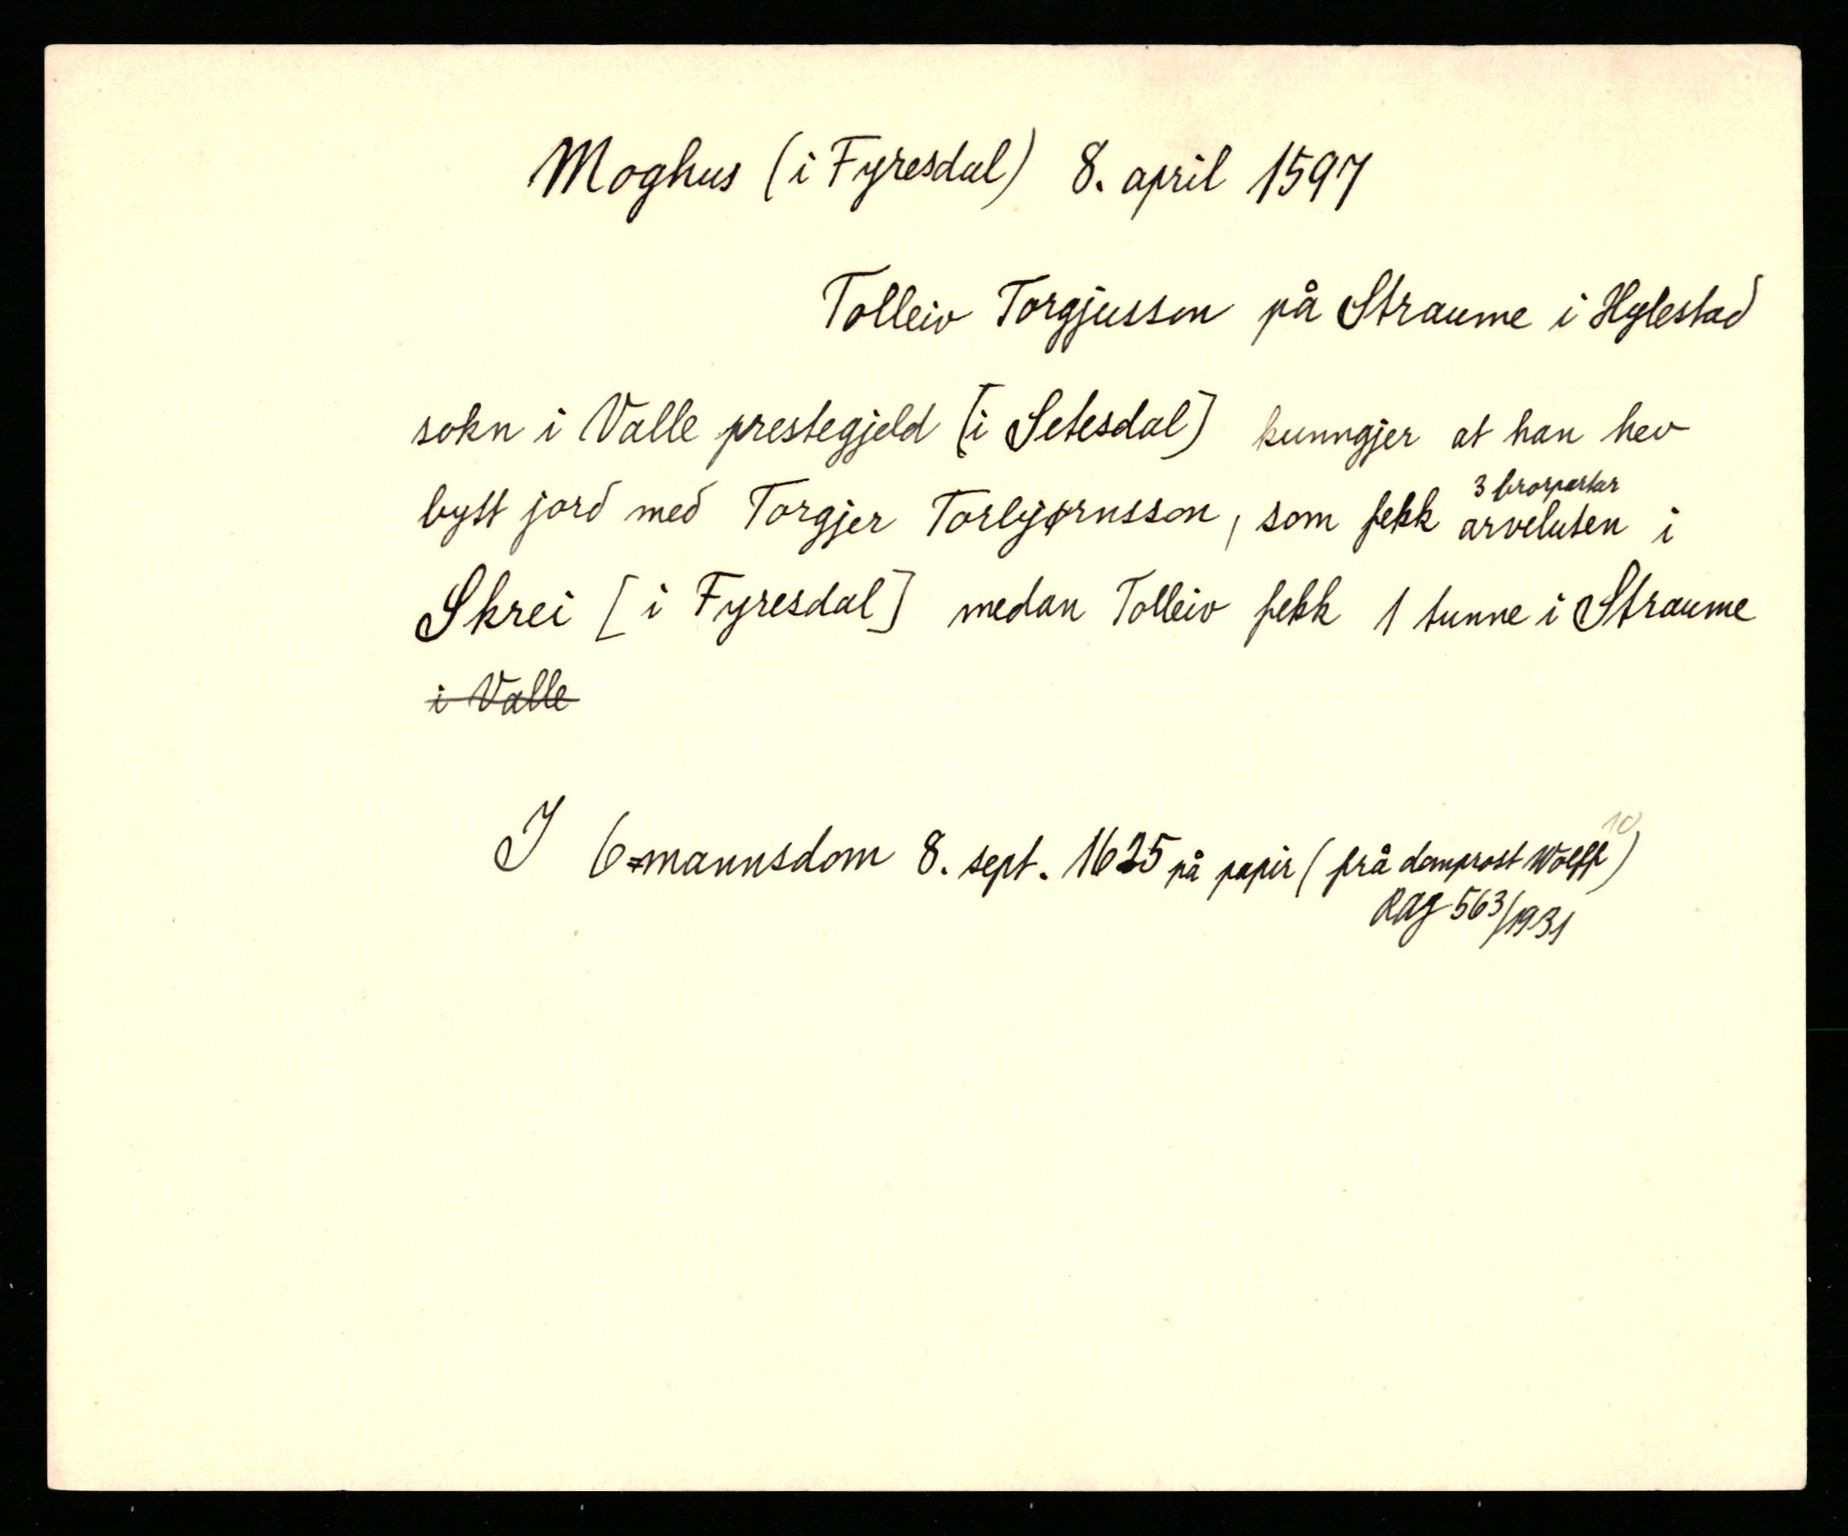 Moghus (i Fyresdal) 8. april 1597
Tolleiv Torgjusson på Straume i Hylestad
sokn i Valle prestegjeld [i Setesdal] kunngjer at han hev
3 brorpartar
bytt jord med Torgjer Torbjørnsson, som fekk arveluten i
Skrei [i Fyresdal] medan Tolleiv fekk 1 tunne i Straume
i Valle
I 6-mannsdom 8. sept. 1625 på papir (frå domprost Wolff 10)
RAJ 563/1931